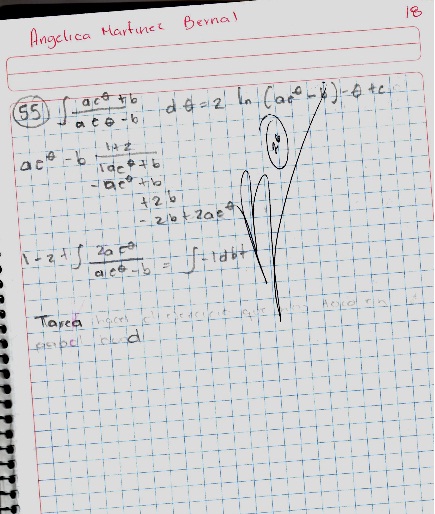 Angelica Martinez Bernal
18
55 ∫ (ae^θ + b)/(ae^θ - b) dθ = 2 ln (ae^θ - b) - θ + c
1+2
ae^θ - b | 1ae^θ + b
-ae^θ + b
+2b
-2b + 2ae^θ
1 - 2 + ∫ 2ae^θ/(ae^θ - b) = ∫ -1dθ +
Tarea